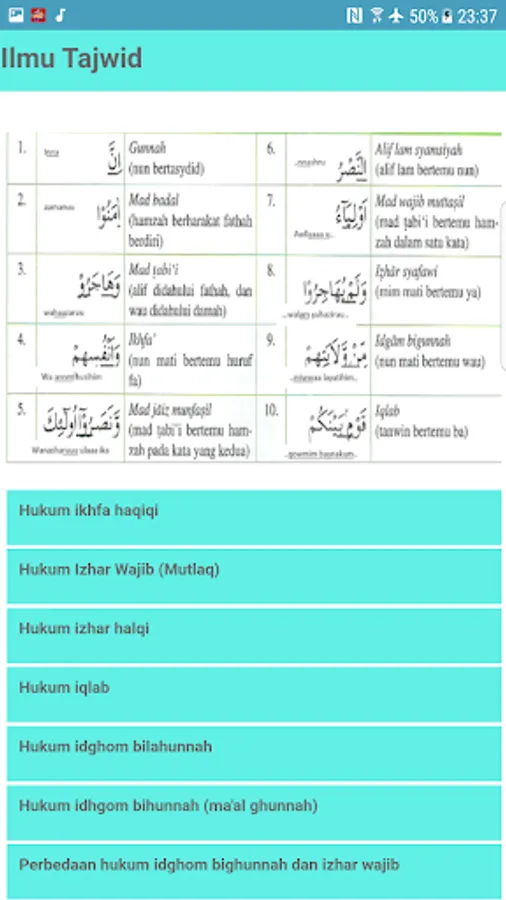 50% 23:37
Ilmu Tajwid
1. إِنَّ Gunnah
(nun bertasydid)
2. اٰمَنُوْا Mad badal
(hamzah berharakat fathah
berdiri)
3. وَهَاجَرُوْا Mad ṭabi‘i
(alif didahului fathah, dan
wau didahului damah)
4. وَاَنْفُسِهِمْ Ikhfa'
(nun mati bertemu huruf
fa)
5. وَّنَصَرُوْٓا اُولٰۤئِكَ Mad jāiz munfaṣil
(mad ṭabi‘i bertemu ham-
zah pada kata yang kedua)
6. النَّصْرُ Alif lam syamsiyah
(alif lam bertemu nun)
7. اَوْلِيَاۤءُ Mad wajib muttaṣil
(mad ṭabi‘i bertemu ham-
zah dalam satu kata)
8. وَلَمْ يُهَاجِرُوْا Iẓhār syafawi
(mim mati bertemu ya)
9. مِّنْ وَّلَايَتِهِمْ Idgām bigunnah
(nun mati bertemu wau)
10. قَوْمٍ بَيْنَكُمْ Iqlab
(tanwin bertemu ba)
Hukum ikhfa haqiqi
Hukum Izhar Wajib (Mutlaq)
Hukum izhar halqi
Hukum iqlab
Hukum idghom bilahunnah
Hukum idhgom bihunnah (ma'al ghunnah)
Perbedaan hukum idghom bighunnah dan izhar wajib